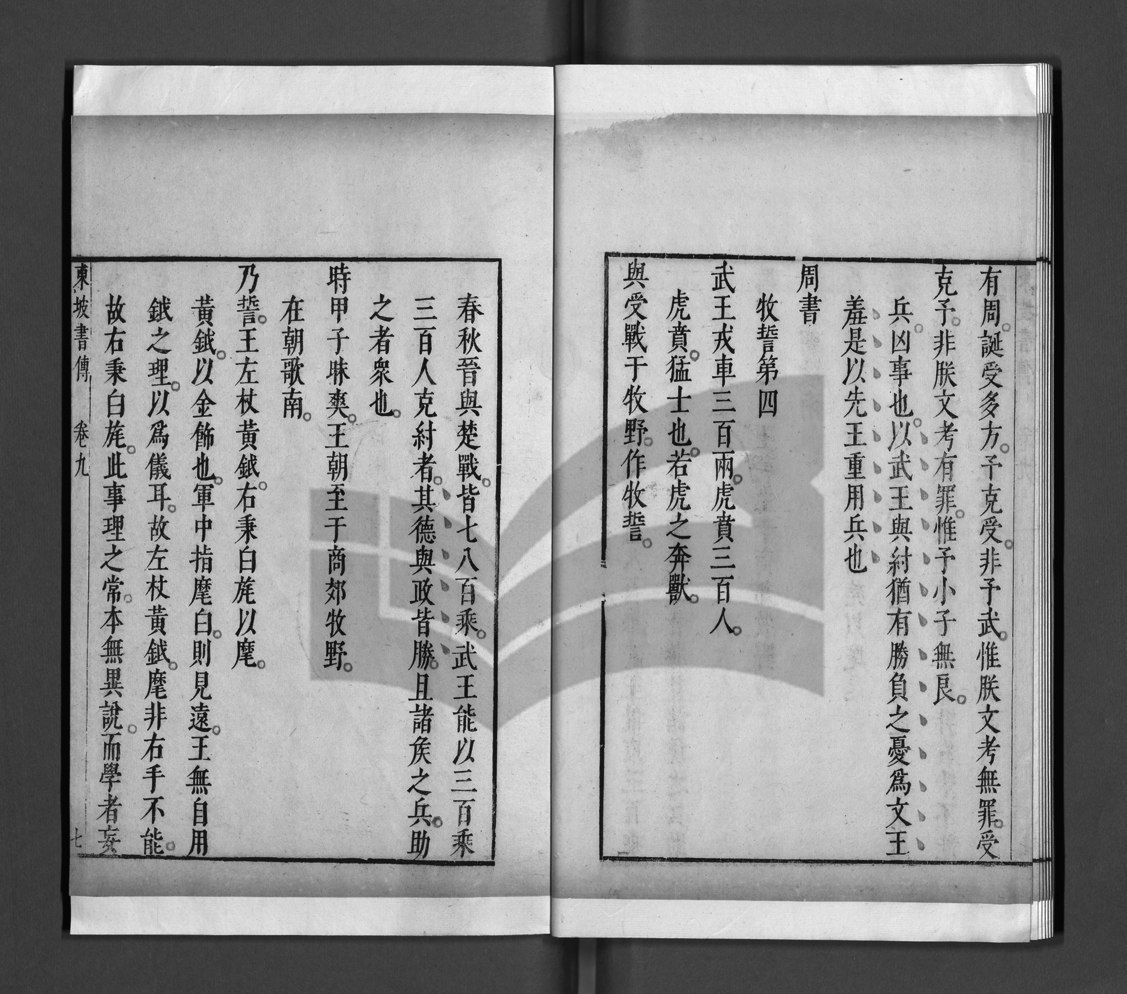 有周。誕受多方。予克受。非予武。惟朕文考無罪。受
克予。非朕文考有罪。惟予小子無良。
兵。凶事也。以武王與紂猶有勝負之憂爲文王
羞是以先王重用兵也
周書
牧誓第四
武王戎車三百兩。虎賁三百人。
虎賁。猛士也。若虎之奔獸。
與受戰于牧野。作牧誓。
春秋晉與楚戰。皆七八百乘。武王能以三百乘
三百人克紂者。其德與政皆勝。且諸侯之兵。助
之者衆也。
時甲子昧爽。王朝至于商郊牧野。
在朝歌南。
乃誓。王左杖黃鉞。右秉白旄以麾。
黃鉞。以金飾也。軍中指麾白。則見遠。王無自用
鉞之理。以爲儀耳。故左杖黃鉞。麾非右手不能。
故右秉白旄。此事理之常。本無異說。而學者妄
東坡書傳 卷九 七